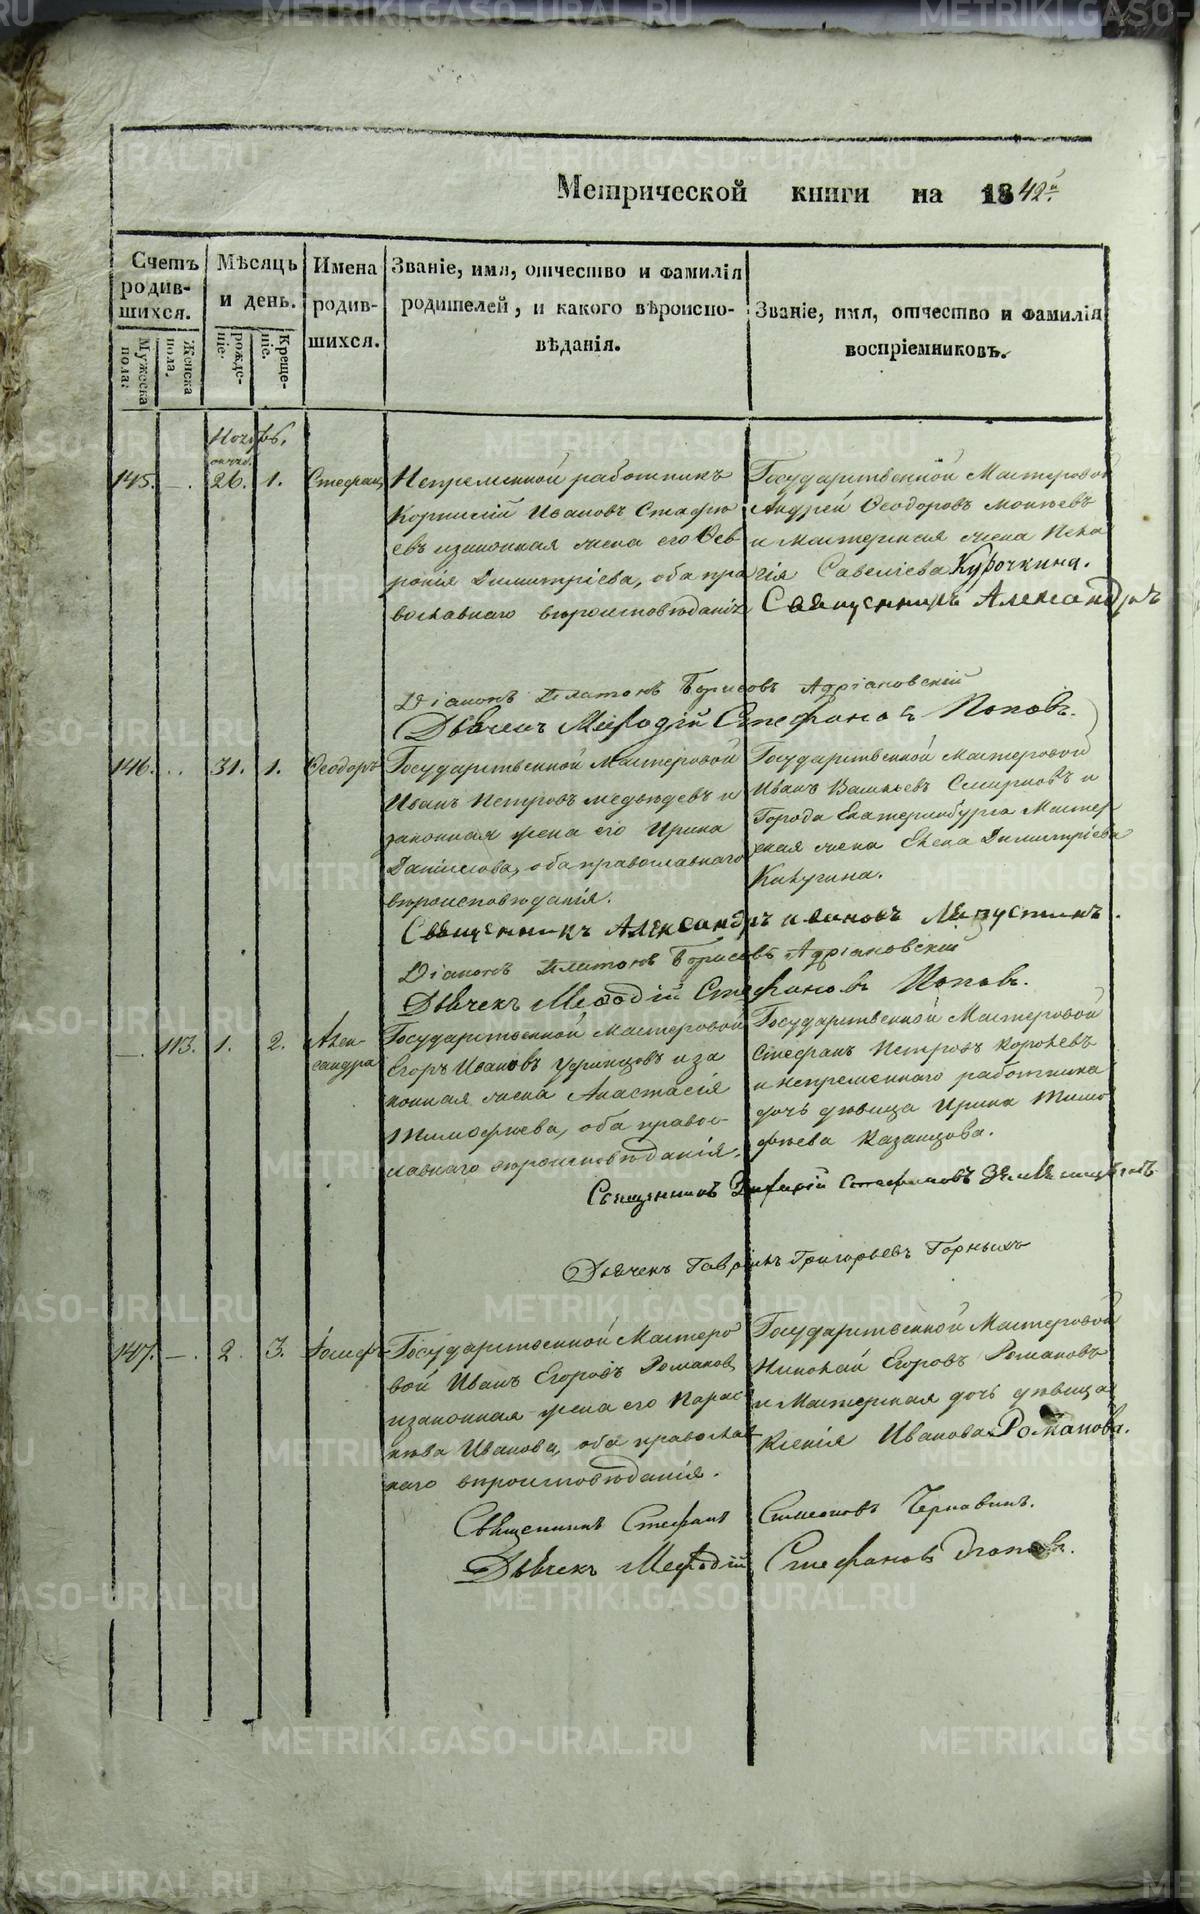 METRIKI.GASO-URAL.RU
Метрической книги на 1842й
Счетъ родив-шихся.
Мужеска пола.
Женска пола.
Мѣсяць и день.
рожде-ніе.
Креще-ніе.
Имена родив-шихся.
Званіе, имя, отчество и фамилія
родителей, и какого вѣроиспо-
вѣданія.
Званіе, имя, отчество и фамилія
воспріемниковъ.
145. — 26. 1. Стефанъ
Непременной работникъ
Корнилій Ивановъ
евъ изаконная жена его Фев-
ронія Димитріева, оба пра
вославнаго вѣроисповѣданія
Государственной Мастеровой
Андрей Феодоровъ
и Мастерская жена Пела
гія Савеліева Курочкина.
Священникъ Александръ
Діаконъ Платонъ Борисовъ Адріановскій
Дьячекъ Мефодій Стефановъ Поповъ.
146. 31. 1. Феодоръ
Государственной Мастеровой
Иванъ Петровъ Медвѣдевъ и
законная жена его Ирина
Данилова, оба православнаго
вѣроисповѣданія.
Государственной Мастеровой
Иванъ Васильевъ Смирновъ и
Города Екатеринбурга Мастер
ская жена Елена Димитріева
Калугина.
Священникъ Александръ Ивановъ
Діаконъ Платонъ Борисовъ Адріановскій
Дьячекъ Мефодій Стефановъ Поповъ.
—. 113. 1. 2. Алек-
сандра
Государственной Мастеровой
Егоръ Ивановъ и за
конная жена Анастасія
Тимофѣева, оба право-
славнаго вѣроисповѣданія.
Государственной Мастеровой
Стефанъ Петровъ Королевъ
и непременнаго работника
дочь дѣвица Ирина Тимо
фѣева Казанцова.
Священникъ Стефановъ
Дьячекъ Гавріилъ Григорьевъ Горныхъ
147. —. 2. 3. Іосифъ
Государственной Мастеро
вой Иванъ Егоровъ Романовъ
изаконная жена его Парас-
кѣва Иванова, оба православ
наго вѣроисповѣданія.
Государственной Мастеровой
Николай Егоровъ Романовъ
и Мастерская дочь дѣвица
Ксенія Иванова Романова.
Священникъ Стефанъ Симеоновъ Чернавинъ.
Дьячекъ Мефодій Стефановъ Поповъ.